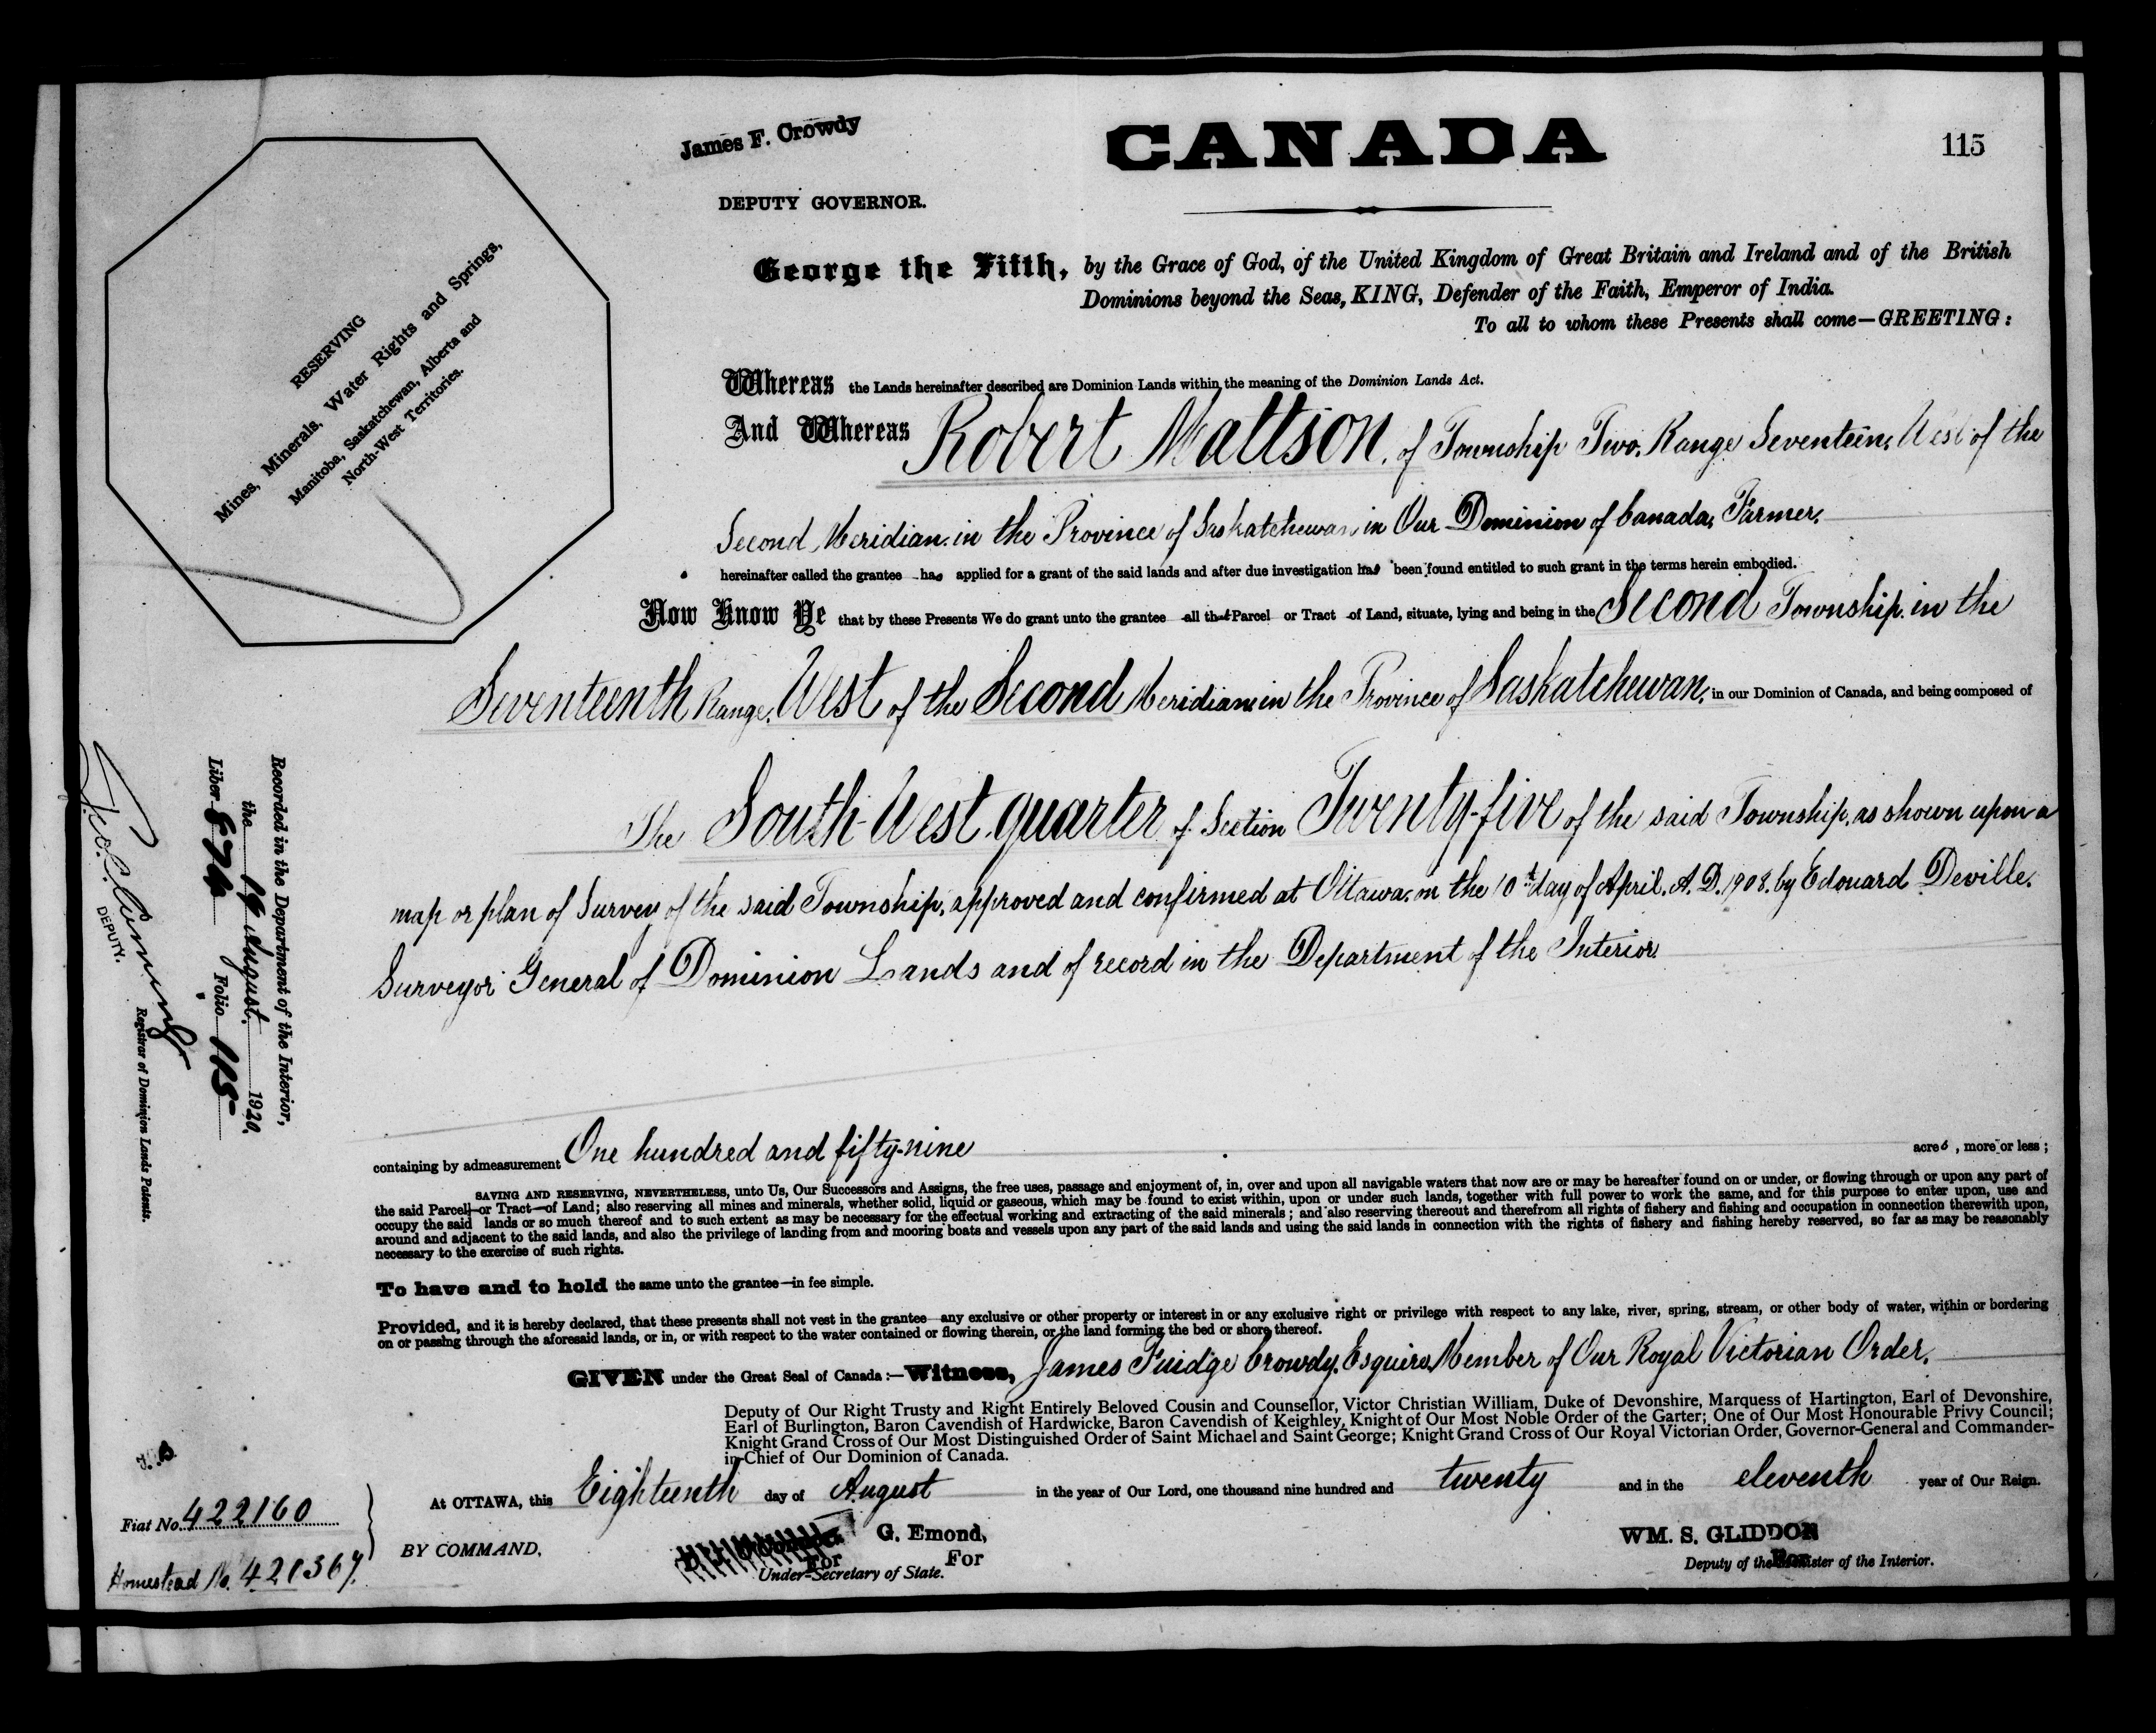 James F. Crowdy
DEPUTY GOVERNOR.
CANADA
115
RESERVING
Mines, Minerals, Water Rights and Springs,
Manitoba, Saskatchewan, Alberta and
North-West Territories.
George the Fifth, by the Grace of God, of the United Kingdom of Great Britain and Ireland and of the British
Dominions beyond the Seas, KING, Defender of the Faith, Emperor of India.
To all to whom these Presents shall come—GREETING:
Whereas the Lands hereinafter described are Dominion Lands within the meaning of the Dominion Lands Act.
And Whereas Robert Mattson, of Township Two, Range Seventeen, West of the
Second Meridian, in the Province of Saskatchewan, in Our Dominion of Canada, Farmer,
hereinafter called the grantee has applied for a grant of the said lands and after due investigation has been found entitled to such grant in the terms herein embodied.
Now Know Ye that by these Presents We do grant unto the grantee all that Parcel or Tract of Land, situate, lying and being in the Second Township, in the
Seventeenth Range, West of the Second Meridian, in the Province of Saskatchewan, in our Dominion of Canada, and being composed of
The South-West quarter of Section Twenty-five of the said Township, as shown upon a
map or plan of Survey of the said Township, approved and confirmed at Ottawa, on the 10th day of April, A.D. 1908, by Edouard Deville,
Surveyor General of Dominion Lands and of record in the Department of the Interior
Recorded in the Department of the Interior,
the 19 August 1920.
Liber Folio 115
DEPUTY.
Registrar of Dominion Lands Patents.
containing by admeasurement One hundred and fifty-nine acres, more or less;
SAVING AND RESERVING, NEVERTHELESS, unto Us, Our Successors and Assigns, the free uses, passage and enjoyment of, in, over and upon all navigable waters that now are or may be hereafter found on or under, or flowing through or upon any part of
the said Parcel—or Tract—of Land; also reserving all mines and minerals, whether solid, liquid or gaseous, which may be found to exist within, upon or under such lands, together with full power to work the same, and for this purpose to enter upon, use and
occupy the said lands or so much thereof and to such extent as may be necessary for the effectual working and extracting of the said minerals; and also reserving thereout and therefrom all rights of fishery and fishing and occupation in connection therewith upon,
around and adjacent to the said lands, and also the privilege of landing from and mooring boats and vessels upon any part of the said lands and using the said lands in connection with the rights of fishery and fishing hereby reserved, so far as may be reasonably
necessary to the exercise of such rights.
To have and to hold the same unto the grantee—in fee simple.
Provided, and it is hereby declared, that these presents shall not vest in the grantee any exclusive or other property or interest in or any exclusive right or privilege with respect to any lake, river, spring, stream, or other body of water, within or bordering
on or passing through the aforesaid lands, or in, or with respect to the water contained or flowing therein, or the land forming the bed or shore thereof.
GIVEN under the Great Seal of Canada:—Witness, James Fuidge Crowdy, Esquire, Member of Our Royal Victorian Order,
Deputy of Our Right Trusty and Right Entirely Beloved Cousin and Counsellor, Victor Christian William, Duke of Devonshire, Marquess of Hartington, Earl of Devonshire,
Earl of Burlington, Baron Cavendish of Hardwicke, Baron Cavendish of Keighley, Knight of Our Most Noble Order of the Garter; One of Our Most Honourable Privy Council;
Knight Grand Cross of Our Most Distinguished Order of Saint Michael and Saint George; Knight Grand Cross of Our Royal Victorian Order, Governor-General and Commander-
in-Chief of Our Dominion of Canada.
At OTTAWA, this Eighteenth day of August in the year of Our Lord, one thousand nine hundred and twenty and in the eleventh year of Our Reign.
Fiat No. 422160
Homestead No.
BY COMMAND,
G. Emond,
For For
Under-Secretary of State.
WM. S. GLIDDON
For
Deputy of the Minister of the Interior.